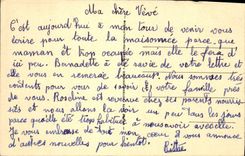 Ma chère Vévé
C'est aujourd'hui à mon tour de venir vous
écrire pour toute la maisonnée parce que
maman est trop occupée mais elle le fera d'
ici peu. Bernadette a été ravie de votre lettre et
elle vous en remercie beaucoup. Nous sommes très
contents pour vous de savoir votre famille près
de vous. Roseline est revenue chez ses parents nourri-
ciers et nous allons la voir un peu tous les jours
parce qu'elle est trop habituée à nous avoir avec elle.
Je vous embrasse de tout mon cœur et vous annonce
d'autres nouvelles pour bientôt.